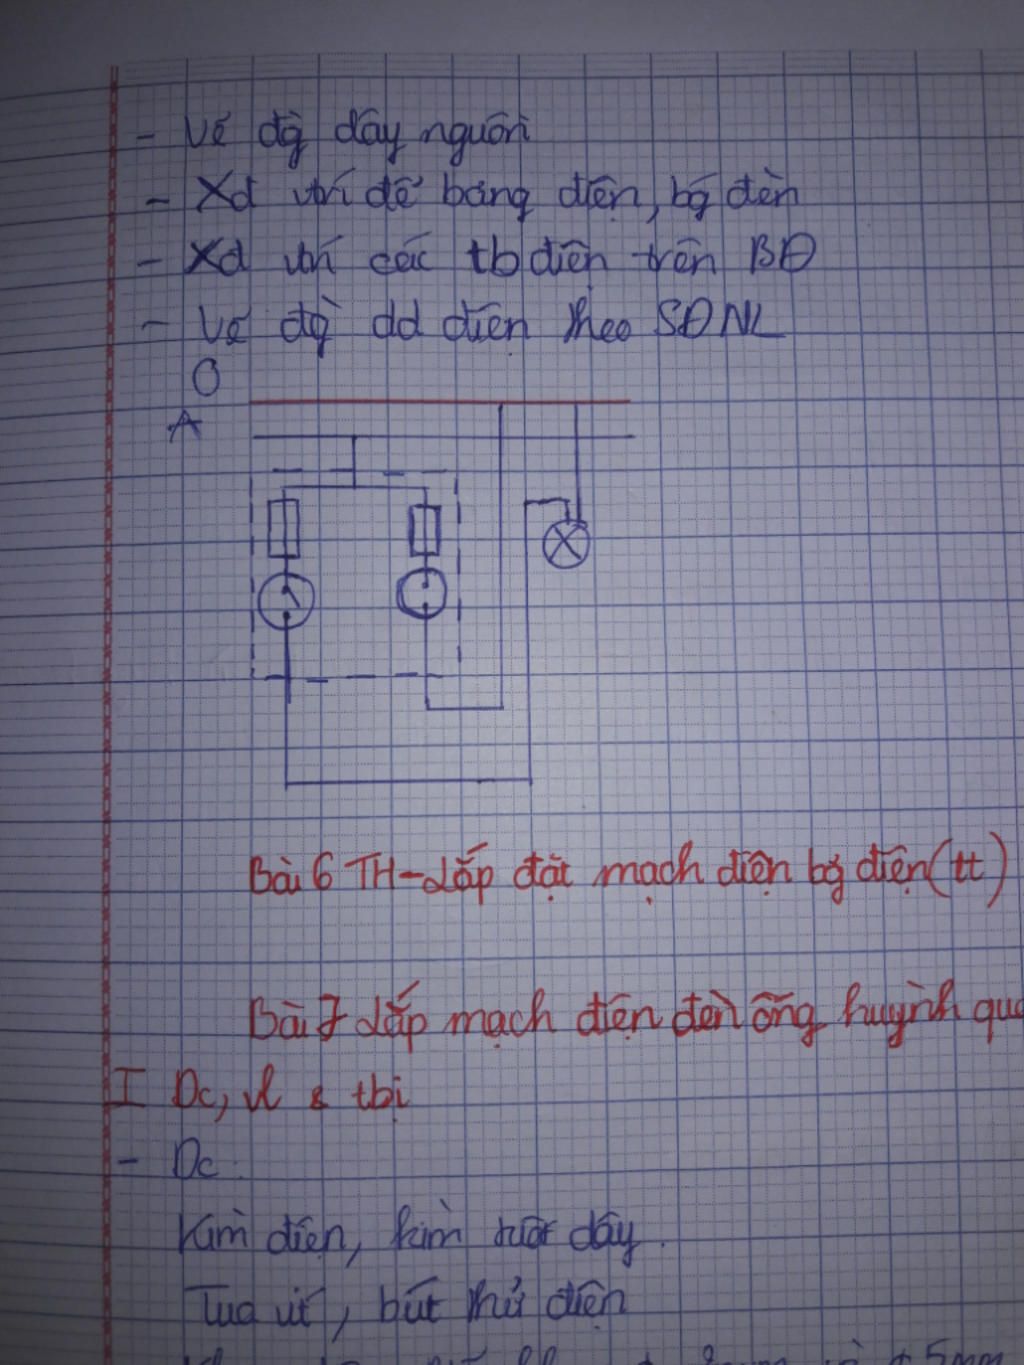 - Vẽ đg dây nguồn
- Xđ vtrí để bảng điện, bg đèn
- Xđ vtrí các tb điện trên BĐ
- Vẽ đg dd điện theo SĐNL
O
A
Bài 6 TH-Lắp đặt mạch điện bg điện (tt)
Bài 7 Lắp mạch điện đèn ống huỳnh qua
I Dc, vl & tbị
- Dc
Kìm điện, kìm tuốt dây.
Tua vít, bút thử điện